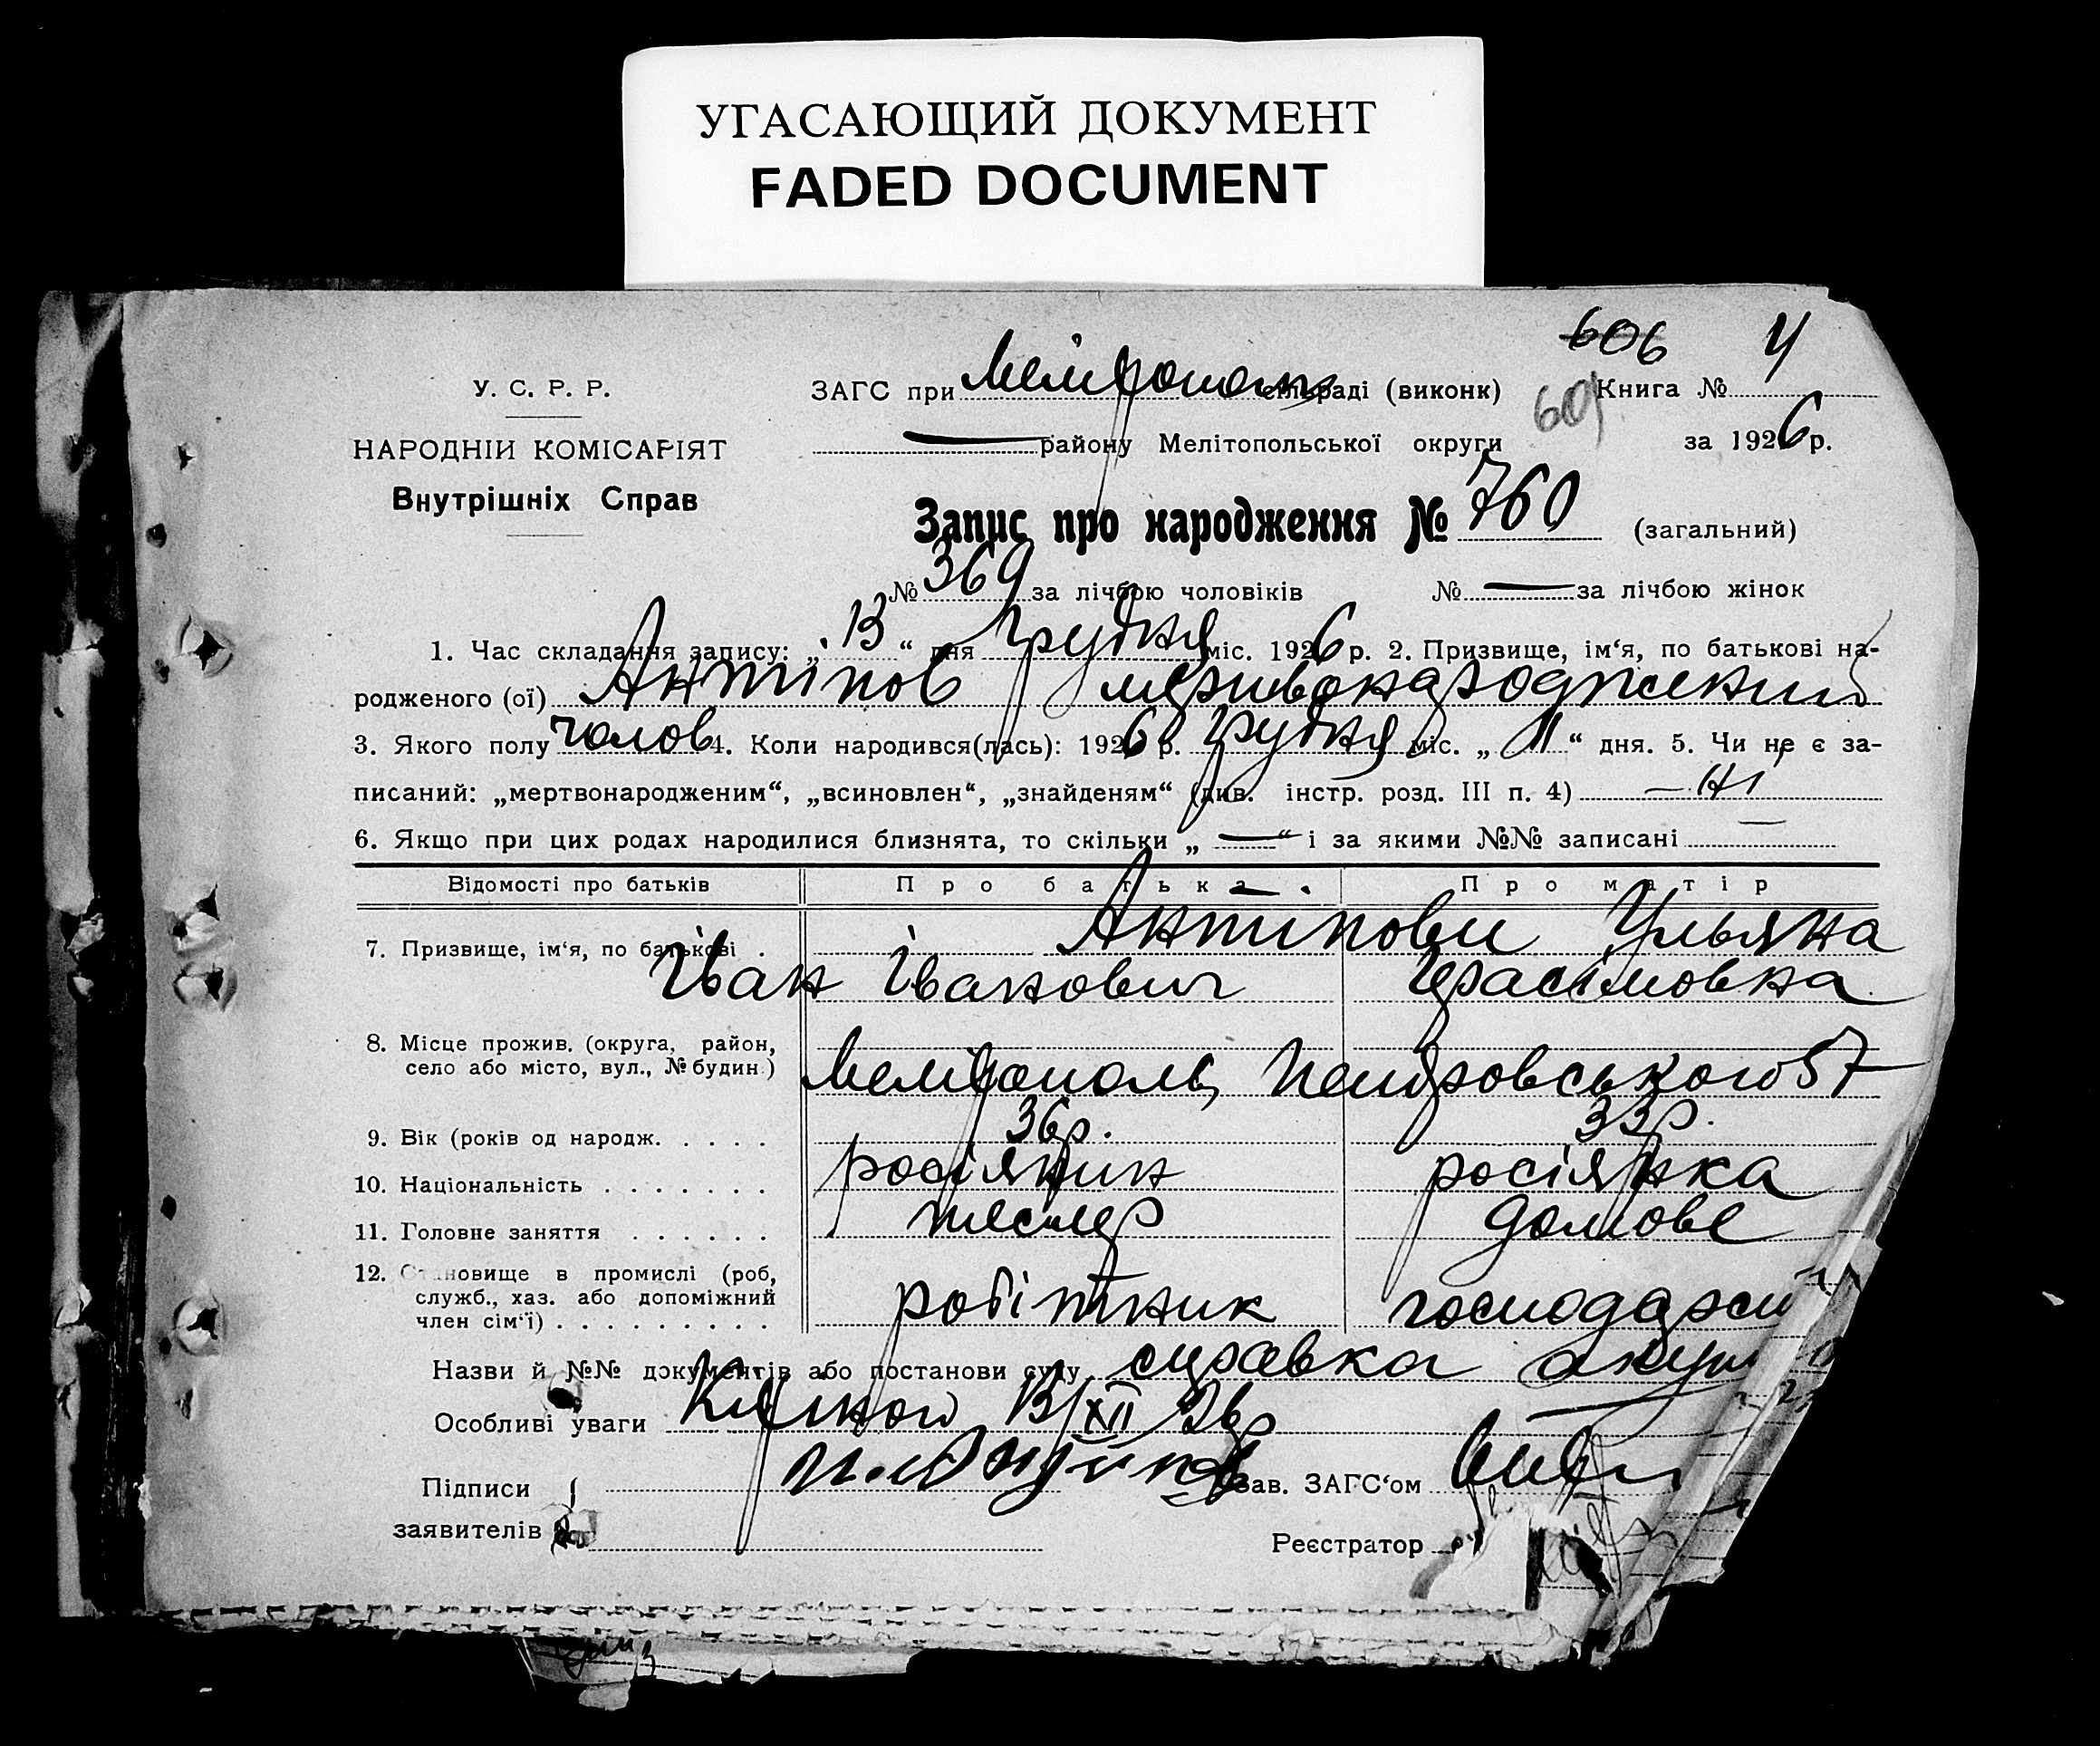 УГАСАЮЩИЙ ДОКУМЕНТ
FADED DOCUMENT
606 4
У. С. Р. Р. ЗАГС при Мелітополь сільраді (виконк) 601 Книга №
НАРОДНІЙ КОМІСАРІЯТ — району Мелітопольської округи за 1926 р.
Внутрішніх Справ
Запис про народження № 760 (загальний)
№ 369 за лічбою чоловіків № — за лічбою жінок
1. Час складання запису: „13“ дня Грудня міс. 1926 р. 2. Призвище, ім‘я, по батькові на-
родженого (ої) Антіпов мертвонароджений
3. Якого полу чолов 4. Коли народився(лась): 1926 р. Грудня міс. „11“ дня. 5. Чи не є за-
писаний: „мертвонародженим“, „всиновлен“, „знайденям“ (див. інстр. розд. III п. 4) — ні
6. Якщо при цих родах народилися близнята, то скільки „ — “ і за якими №№ записані —
Відомості про батьків Про батька Про матір
7. Призвище, ім‘я, по батькові . Антіпови Ульяна
Іван Іванович Герасімовна
8. Місце прожив. (округа, район,
село або місто, вул., № будин.) Мелітополь, Петровського 57
9. Вік (років од народж. . . . . 36 р. 33 р.
10. Національність . . . . . . . росіянин росіянка
11. Головне заняття . . . . . . тесляр домове
12. Становище в промислі (роб,
служб., хаз. або допоміжний
член сім‘ї) . . . . . . . . . робітник господарст
Назви й №№ документів або постанови суду справка акуш
Особливі уваги 13/XII 26р
Підписи 1 Зав. ЗАГС‘ом
заявителів 2 Реєстратор